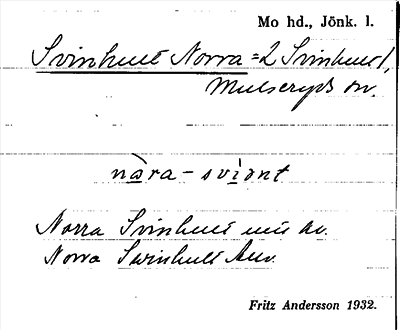 Mo hd., Jönk. l.
Svinhult Norra = 2 Svinhult 1,
Mulseryds sn.
nàra - svìont
Norra Svinhult uu av.
Norra Swinhult
Fritz Andersson 1932.